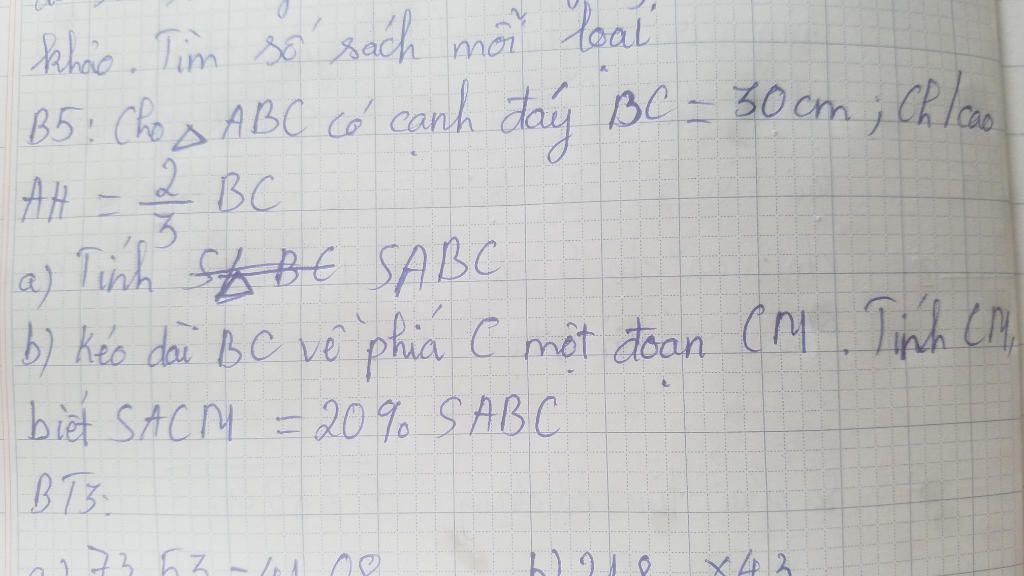 khảo. Tìm số sách mỗi loại
B5: Cho △ ABC có cạnh đáy BC = 30cm; Ch/cao
AH = 2/3 BC
a) Tính SABC
b) Kéo dài BC về phía C một đoạn CM. Tính CM,
biết SACM = 20% SABC
BT3:
a) 73,53 - 41,08 b) 21,8 × 4,3